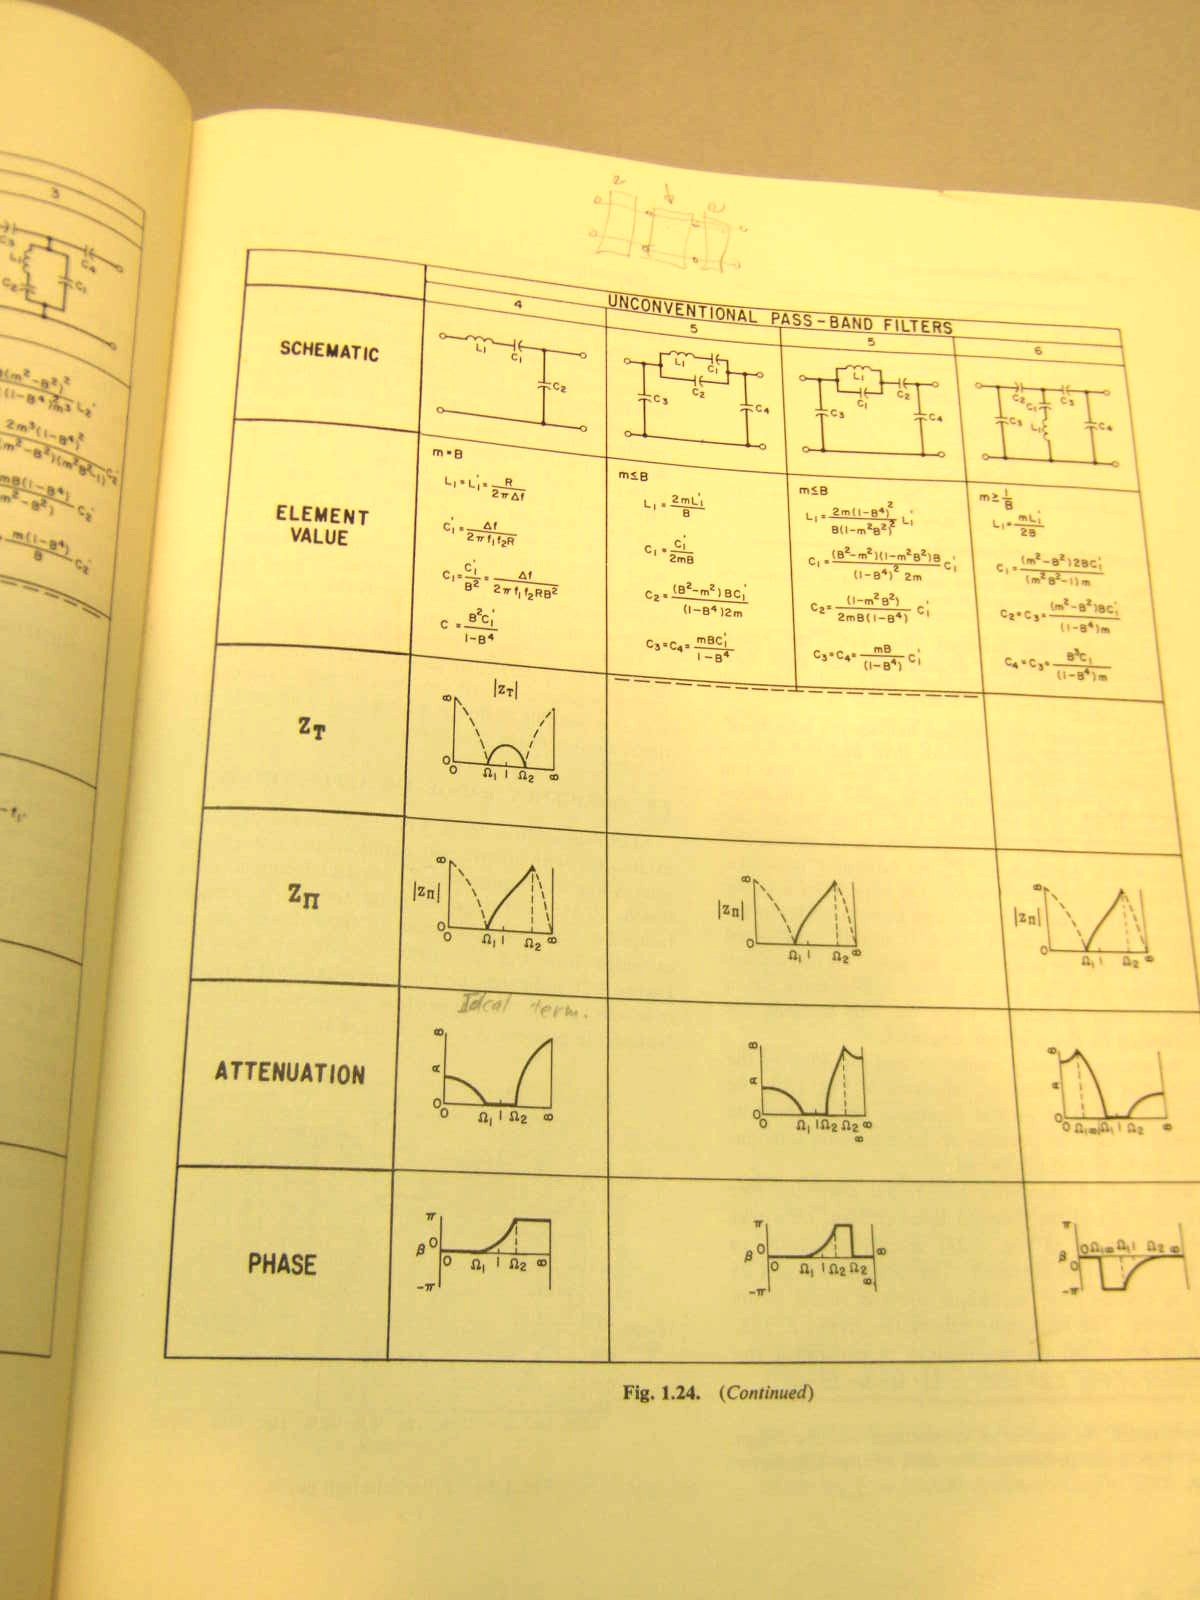 3
C3
C4
L1
C2
C1
UNCONVENTIONAL PASS-BAND FILTERS
4
5
5
6
SCHEMATIC
L1 C1 C2
L1 C1 C2 C3 C4
L1 C1 C2 C3 C4
C2 C1 C3 C3 L1 C4
ELEMENT
VALUE
m=B
L1=L1'=R/2πΔf
C1'=Δf/2πf1f2R
C1=C1'/B²=Δf/2πf1f2RB²
C=B²C1'/1-B⁴
m≤B
L1=2mL1'/B
C1=C1'/2mB
C2=(B²-m²)BC1'/(1-B⁴)2m
C3=C4=mBC1'/1-B⁴
m≤B
L1=2m(1-B⁴)²/B(1-m²B²)² L1'
C1=(B²-m²)(1-m²B²)B/(1-B⁴)² 2m C1'
C2=(1-m²B²)/2mB(1-B⁴) C1'
C3=C4=mB/(1-B⁴) C1'
m≥1/B
L1=mL1'/2B
C1=(m²-B²)2BC1'/(m²B²-1)m
C2=C3=(m²-B²)BC1'/(1-B⁴)m
C4=C3=B³C1/(1-B⁴)m
ZT
|ZT|
∞
0
0 Ω1 1 Ω2 ∞
ZΠ
∞
|ZΠ|
0
0 Ω1 1 Ω2 ∞
∞
|ZΠ|
0
Ω1 1 Ω2 ∞
∞
|ZΠ|
0
Ω1 1 Ω2 ∞
Ideal term.
ATTENUATION
∞
α
0
0 Ω1 1 Ω2 ∞
∞
α
0
0 Ω1 1 Ω2 Ω2∞ ∞
∞
α
0
0 Ω1∞ Ω1 1 Ω2 ∞
PHASE
π
β 0
-π
0 Ω1 1 Ω2 ∞
π
β 0
-π
0 Ω1 1 Ω2 Ω2∞ ∞
π
β 0
-π
0 Ω1∞ Ω1 1 Ω2 ∞
Fig. 1.24. (Continued)